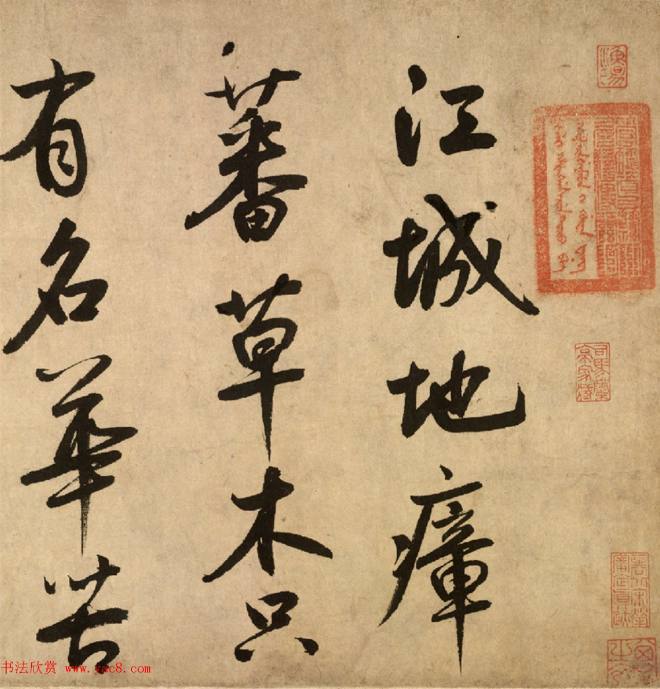 江城地瘴
蕃草木只
有名華苦
书法欣赏 www.yac8.com